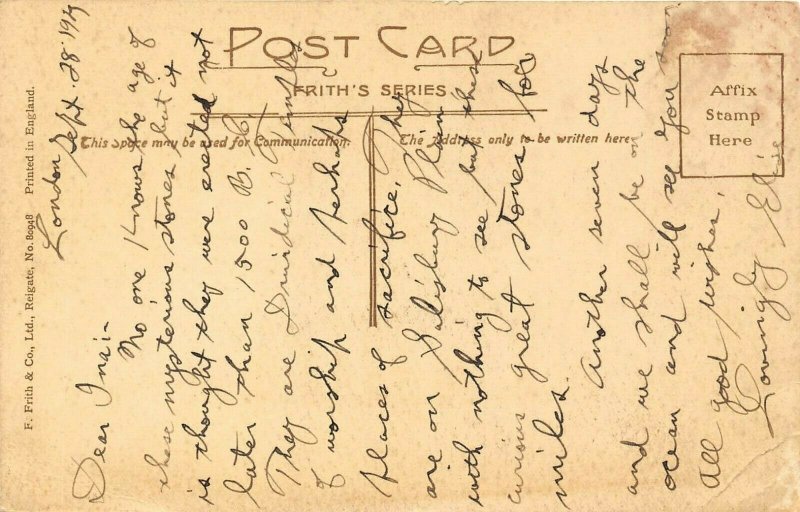 POST CARD
FRITH'S SERIES.
This Space may be used for Communication.
The Address only to be written here
Affix
Stamp
Here
F. Frith & Co., Ltd., Reigate, No. 80948 Printed in England.
London
Sept. 28. 1929
Dear Ina:-
No one knows the age of
these mysterious stones but it
is thought they were erected not
later than 1500 B. C.
They are Druidical Temples
of worship and perhaps
places of sacrifice. They
are on Salisbury Plain
with nothing to see but these
curious great stones for
miles.
Another seven days
and we shall be on the
ocean and will see you soon
All good wishes,
Lovingly